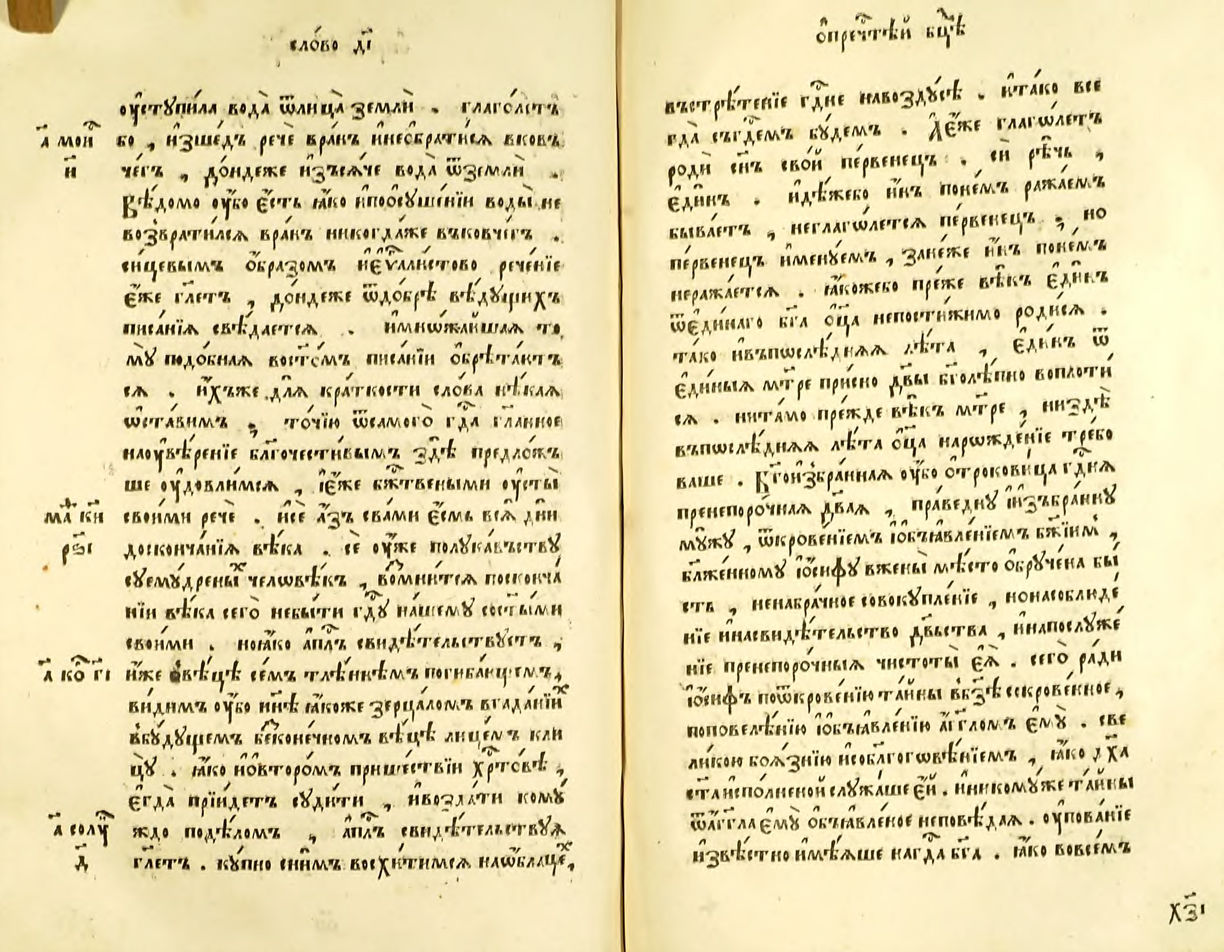 сло́во дı҃
оу҆ступи́ла вода̀ ѿлица̀ землѝ . глаго́летъ
а҃ мои
бо , и҆зше́дъ речѐ вра́нъ и҆необрати́ся вков
н҃
че́гъ , до́ндеже и҆зъся́че вода̀ ѿземлѝ .
Вѣ́домо оу҆́бо є҆́сть ꙗ҆́ко и҆поѡсуше́нїи воды̀ не
возврати́лся вра́нъ никогда́же въковче́гъ .
си́цевымъ о҆́бразомъ и҆є҆ѵⷢ҇а́листово рече́нїе
є҆́же гл҃етъ , до́ндеже ѿдо́брѣ вѣ́дущихъ
писа́нїя свѣ́дается . и҆мнѡ́жайшая то
мꙋ̀ подо́бная восто́мъ писа́нїи о҆брѣта́ютъ
ся . и҆́хъже для̀ кра́ткости сло́ва нѣ́кая
ѡ҆ста́вимъ , то́чїю ѿсамого̀ гдⷭ҇а гл҃анное
наоу҆вѣре́нїе бл҃гочести́вымъ здѣ̀ предло́жъ
ше оу҆дово́лимся , і҆є҆́же бж҃твеными оу҆сты̀
своими речѐ . и҆сѐ а҆́зъ сва́ми є҆́смь вся̀ дни̑
ма҃ ки
рѕ҃і
досконча́нїя вѣ́ка . сѐ оу҆́же полука́въству
суему́дреныⷯ челѡвѣ́къ , во́мнится посконча́
нїи вѣ́ка сего̀ небы́ти гдⷭ҇у на́шему состы́ми
своими . ноꙗ҆́ко а҆пⷭ҇лъ свидѣ́тельствуетъ ,
а҃ ко гі҃
и҆́же в̾вѣ́цѣ се́мъ тлѣ́ннѣмъ погиба́ющемъ ,
ви́димъ оу҆́бо нн҃ѣ ꙗ҆́коже зерца́ломъ вгада́нїиⷯ
вбу́дущемъ бесконе́чномъ вѣ́цѣ лице́мъ кли
цу̀ . ꙗ҆́ко и҆овторо́мъ прише́ствїи хрⷭ҇то́вѣ ,
є҆гда̀ прїи́детъ суди́ти , и҆возда́ти кому
а҃ солꙋⷩ҇
ждо подѣло́мъ , а҆пⷭ҇лъ свидѣ́тельствуя
д҃
гл҃етъ . ку́пно сни́мъ восхи́тимся наѡ҆́блацеⷯ,
ѡ҆преч҇тⷭ҇ѣй бц҃ѣ
въстрѣ́тенїе гдⷭ҇не навозду́сѣ . и҆та́ко все
гда̀ съгдⷭ҇емъ бу́демъ . А҆є҆́же глаго́летъ
родѝ сн҃ъ сво́й пе́рвенецъ . си̑ рѣ́чь ,
є҆ди́нъ . идѣ́жебо и҆́нъ поне́мъ ража́емъ
быва́етъ , неглаго́лется пе́рвенецъ , но
пе́рвенецъ именуемъ , зане́же и҆́нъ поне́мъ
неража́ется . ꙗ҆́коже́бо пре́же вѣ́къ є҆ди́нъ
ѿє҆ди́наго бг҃а о҆ц҃а̀ непости́жимо роди́ся .
та́ко и҆въпослѣ́дняя лѣ́та , є҆ди́нъ ѿ
є҆ди́ныя мт҃ре при́сно дв҃ы бг҃олѣ́пно воплоти́
ся . нита́мо пре́жде вѣ́къ мт҃ре , низдѣ̀
въпослѣ́дняя лѣ́та о҆ц҃а̀ нарѡжде́нїе тре́бо
ваше . Бг҃ои҆збра́нная оу҆́бо ѻ҆трокови́ца гдⷭ҇ня
пренепоро́чная дв҃ая , пра́ведну і҆и҆збра́нну
му́жу , ѿкрове́нїемъ і҆ѡбъꙗвле́нїемъ бж҃їимъ ,
блаже́нному і҆ѡ́сифу вжены̀ мѣ́сто о҆бру́чена бы́
сть , ненабра́чное совокупле́нїе , нонасоблюде́
нїе и҆насвидѣ́тельство дв҃ьства , и҆напослуже́
нїе пренепоро́чныя чистоты̀ є҆я̀ . сего̀ ра́ди
і҆ѡ́сифъ поѿкрове́нїю та́йны вбз҃ѣ сокрове́нное ,
поповелѣ́нїю і҆ѡбъꙗвле́нїю а҆́гг҃ломъ є҆мꙋ̀ . све
ли́кою боя́знїю и҆собл҃гоговѣ́нїемъ , ꙗ҆́ко дх҃а
ст҃а и҆спо́лненой служа́ше є҆́й . и҆никому́же та́йны
ѿа҆́гг҃ла є҆мꙋ̀ о҆бъꙗвле́ное неповѣ́дая . оу҆пова́нїе
и҆звѣ́стно и҆мѣ́яше нагдⷭ҇а бг҃а . ꙗ҆́ко вовсе́мъ
хз҃і